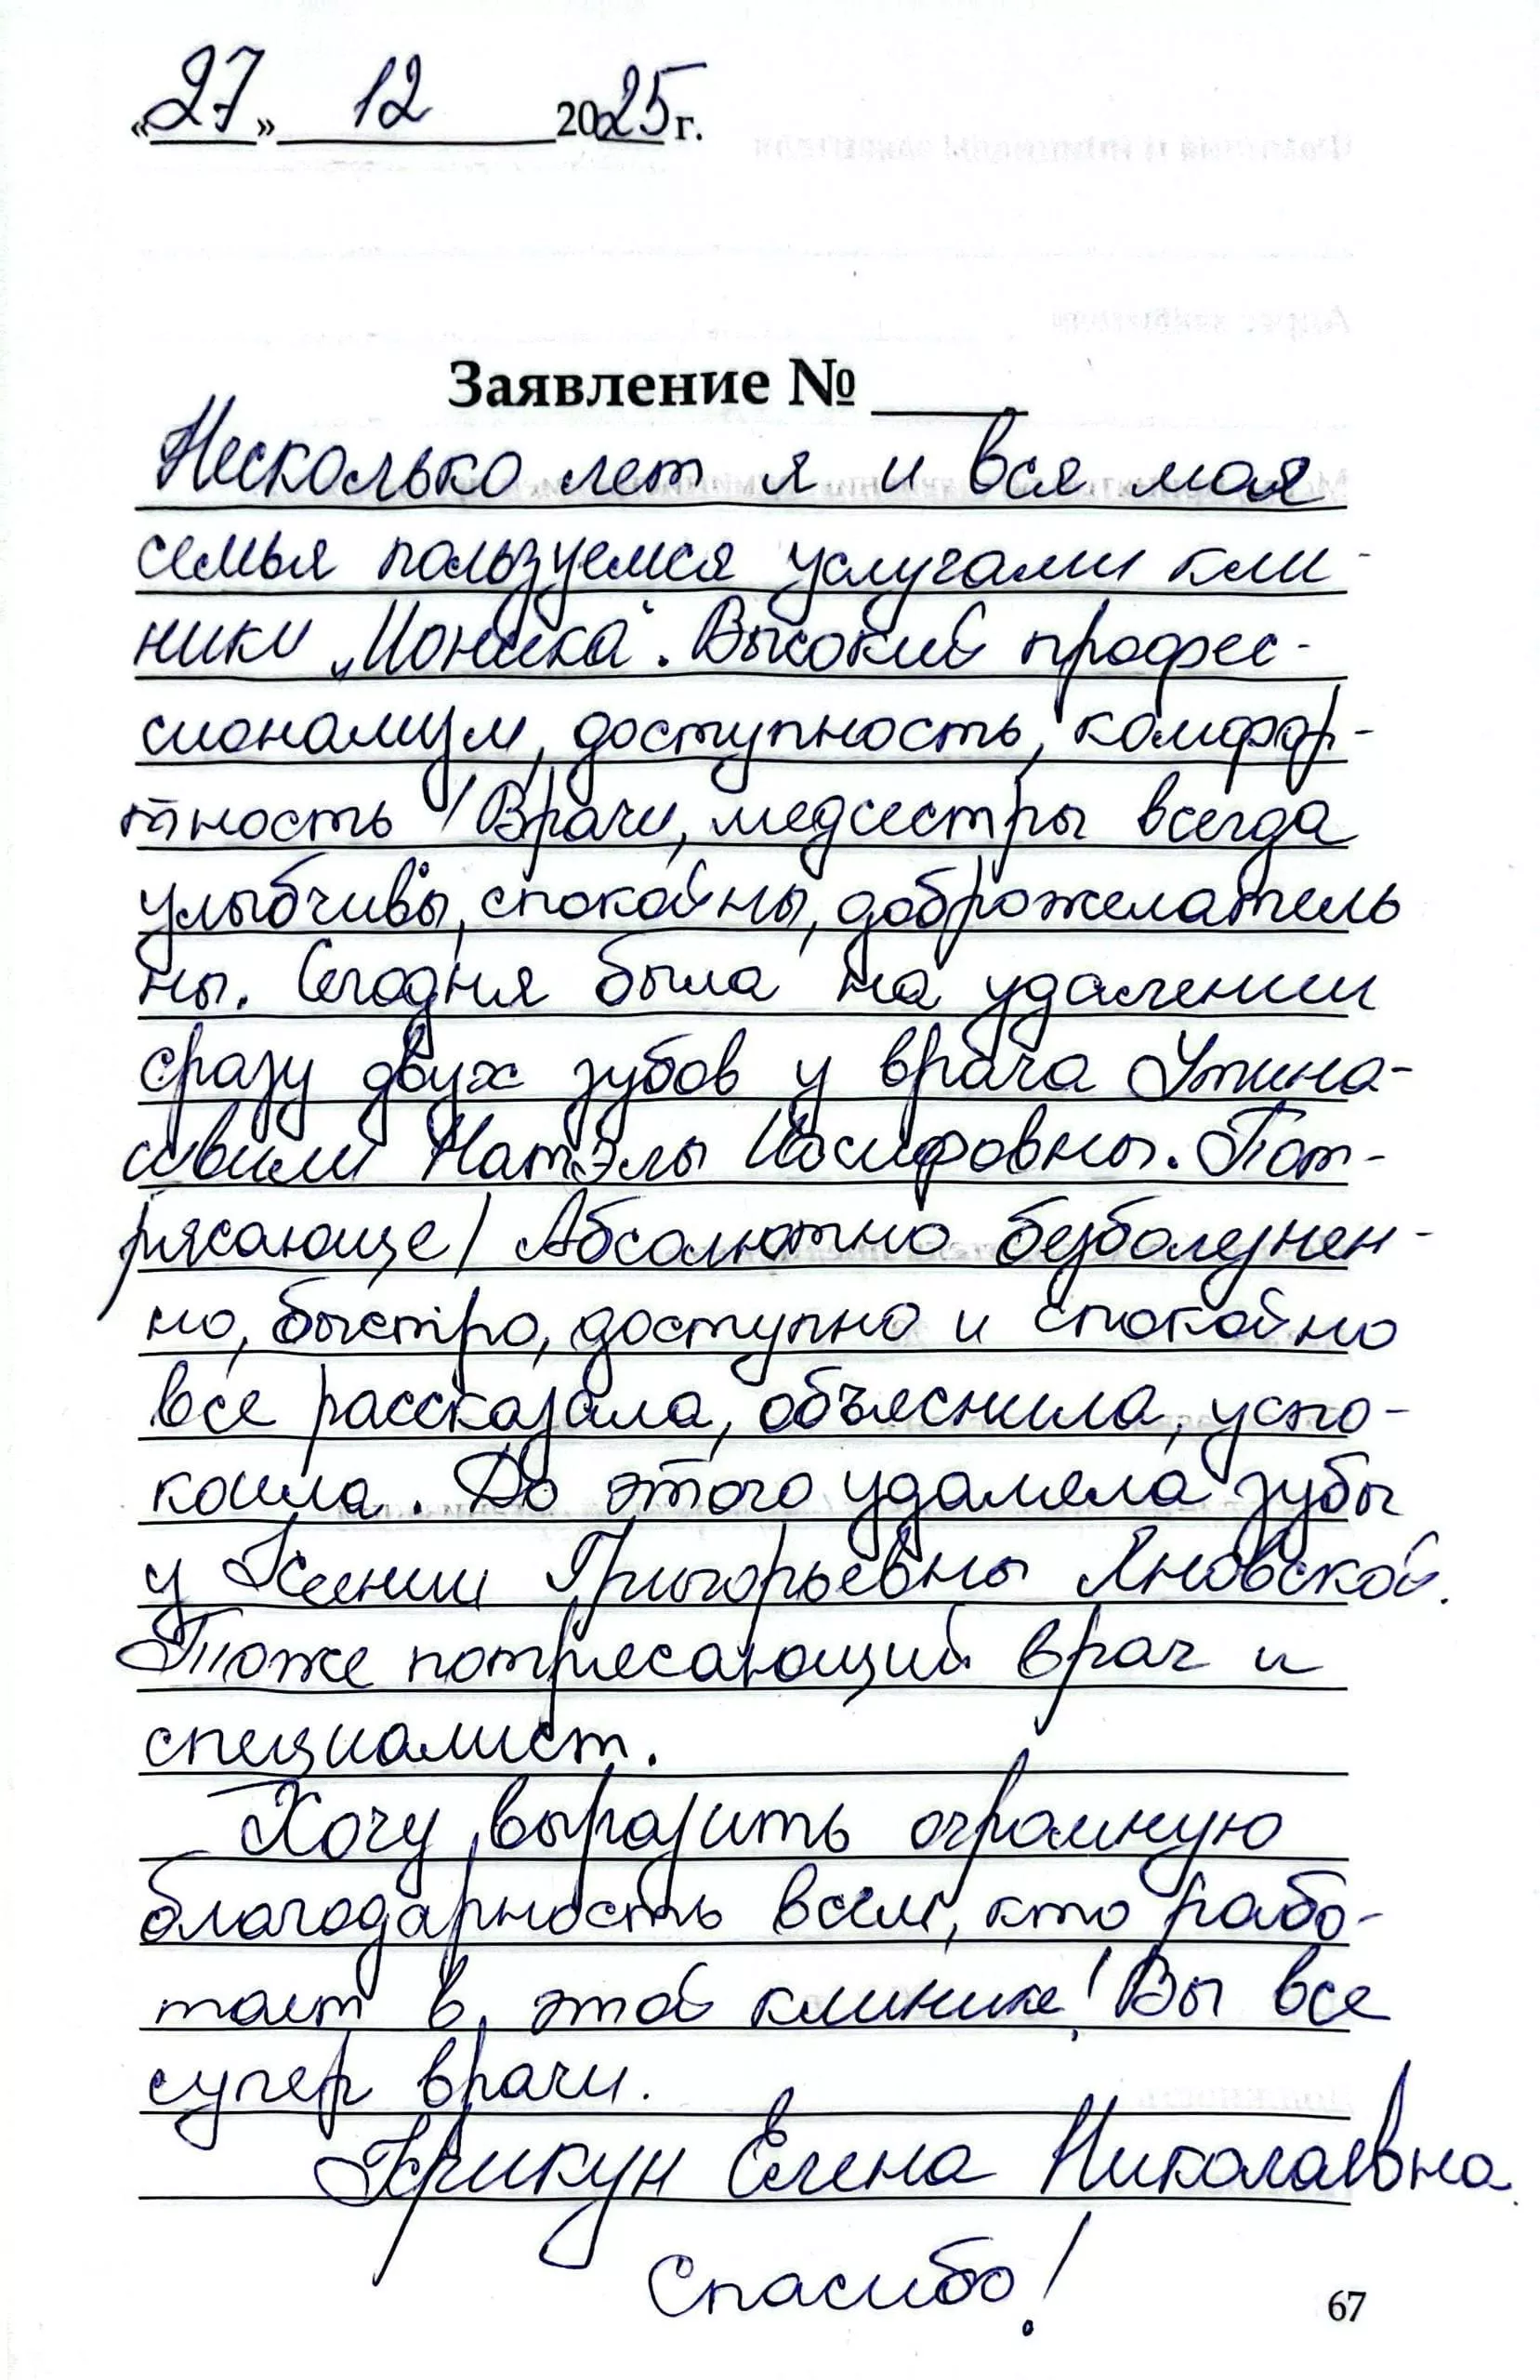 «27» 12 2025 г.
Заявление № ____
Несколько лет я и вся моя
семья пользуемся услугами кли-
ники „Ионика". Высокий профес-
сионализм, доступность, комфор-
тность! Врачи, медсестры всегда
улыбчивы, спокойны, доброжелатель
ны. Сегодня была на удалении
сразу двух зубов у врача Утина-
швили Натэлы Иосифовны. Пот-
рясающе! Абсолютно безболезнен-
но, быстро, доступно и спокойно
все рассказала, объяснила, успо-
коила. До этого удаляла зубы
у Ксении Григорьевны Яновской.
Тоже потрясающий врач и
специалист.
Хочу выразить огромную
благодарность всем, кто рабо-
тает в этой клинике! Вы все
супер врачи.
Крикун Елена Николаевна
Спасибо!
67